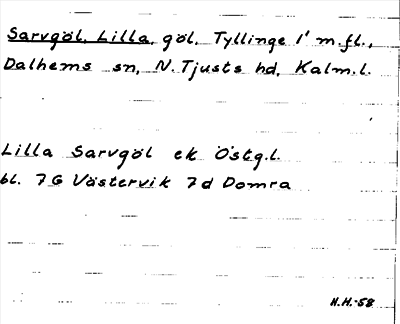 Sarvgöl, Lilla, göl, Tyllinge 1' m.fl.,
Dalhems sn, N. Tjusts hd, Kalm.l.
Lilla Sarvgöl ek Östg.l.
bl. 7G Västervik 7d Domra
H.H.-58